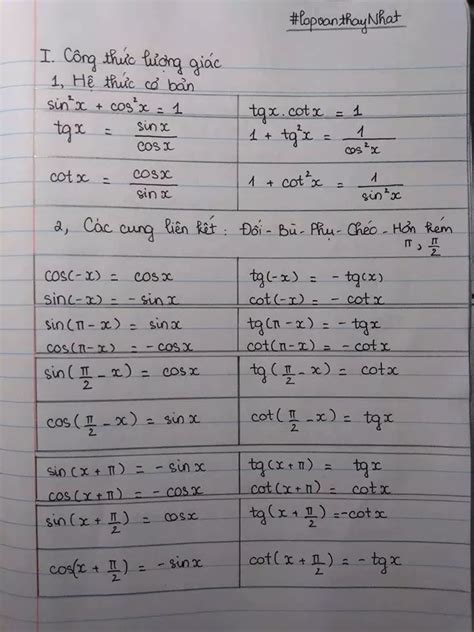 #lopoanthayNhat
I. Công thức lượng giác
1, Hệ thức cơ bản
sin²x + cos²x = 1 tgx.cotx = 1
tgx = sinx/cosx 1 + tg²x = 1/cos²x
cotx = cosx/sinx 1 + cot²x = 1/sin²x
2, Các cung liên kết : Đối - Bù - Phụ - Chéo - Hơn kém π, π/2
cos(-x) = cosx tg(-x) = -tg(x)
sin(-x) = -sinx cot(-x) = -cotx
sin(π-x) = sinx tg(π-x) = -tgx
cos(π-x) = -cosx cot(π-x) = -cotx
sin(π/2 - x) = cosx tg(π/2 - x) = cotx
cos(π/2 - x) = sinx cot(π/2 - x) = tgx
sin(x+π) = -sinx tg(x+π) = tgx
cos(x+π) = -cosx cot(x+π) = cotx
sin(x + π/2) = cosx tg(x + π/2) = -cotx
cos(x + π/2) = -sinx cot(x + π/2) = -tgx